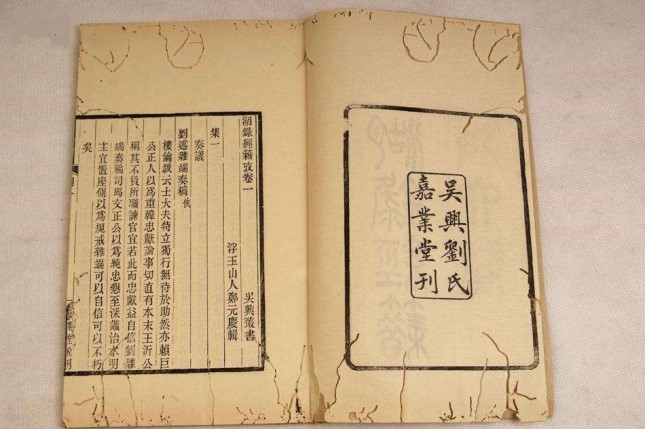 吳興劉氏
嘉業堂刊
湖錄經籍攷卷一
吳興叢書
浮玉山人鄭元慶輯
集一
奏議
劉述雜端奏稿 佚
樓鑰跋云士大夫特立獨行無待於助然亦賴巨
公正人以爲重韓忠獻論事切直有本末王沂公
稱其不負所職諫官宜若此而忠獻益自信劉雜
端奏稿司馬文正公以爲純忠懇至深識治本明
主宜置座側以爲規戒雜端可以自信可以不朽
矣